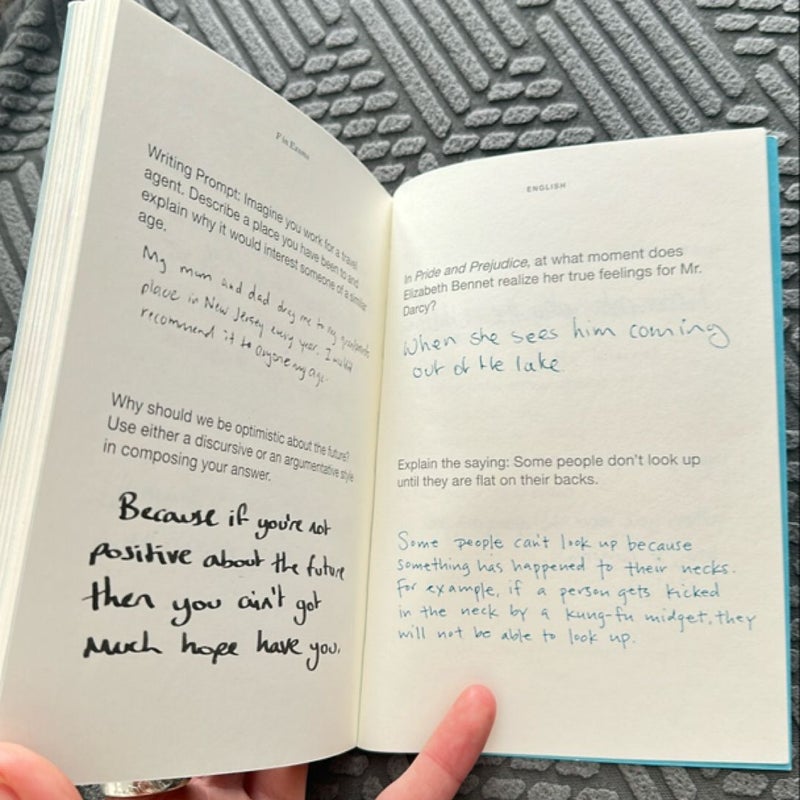 F in Exams
Writing Prompt: Imagine you work for a travel
agent. Describe a place you have been to and
explain why it would interest someone of a similar
age.
My mum and dad drag me to my grandparents
place in New Jersey every year. I wouldn't
recommend it to anyone my age.
Why should we be optimistic about the future?
Use either a discursive or an argumentative style
in composing your answer.
Because if you're not
positive about the future
then you ain't got
much hope have you.
ENGLISH
In Pride and Prejudice, at what moment does
Elizabeth Bennet realize her true feelings for Mr.
Darcy?
When she sees him coming
out of the lake.
Explain the saying: Some people don't look up
until they are flat on their backs.
Some people can't look up because
something has happened to their necks.
For example, if a person gets kicked
in the neck by a kung-fu midget, they
will not be able to look up.